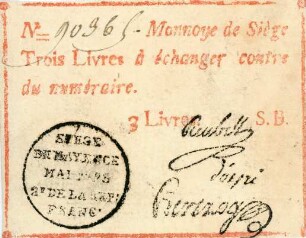 No 90365. Monnoye de Siège
Trois Livres à échanger contre
du numéraire.
3 Livres. S. B.
SIEGE
DE MAYENCE
MAI 1793
2e DE LA REP.
FRANC.
Reubell